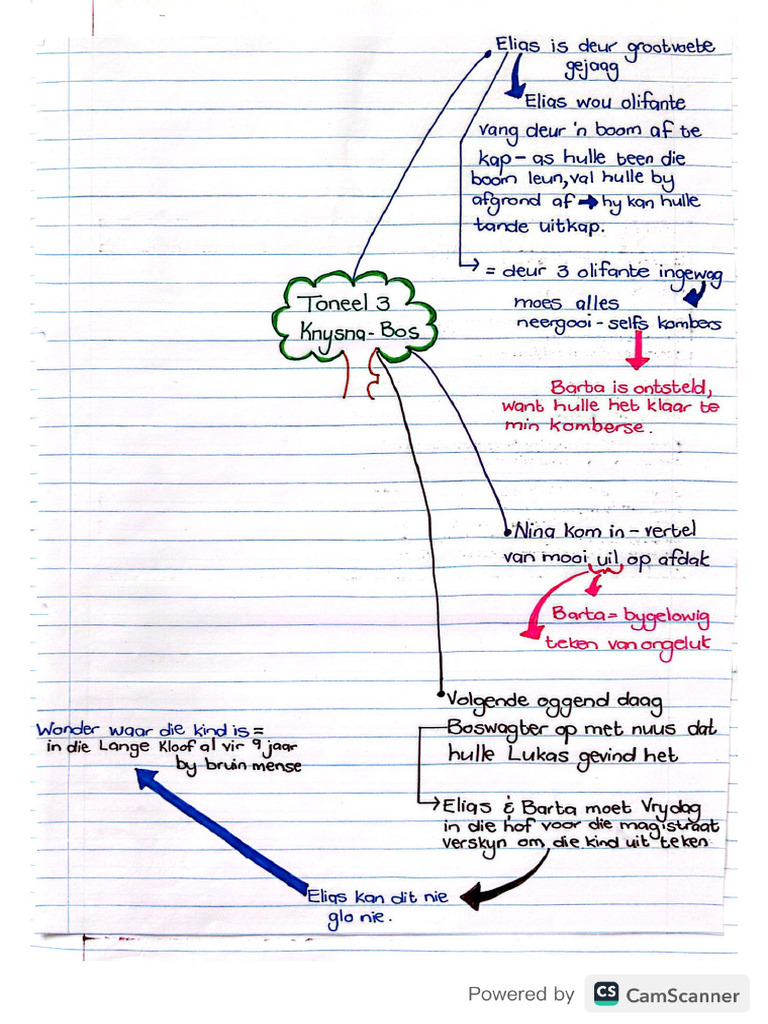 Elias is deur grootvoete
gejaag
Elias wou olifante
vang deur 'n boom af te
kap - as hulle teen die
boom leun, val hulle by
afgrond af → hy kan hulle
tande uitkap.
= deur 3 olifante ingewag
moes alles
neergooi - selfs kombers
Barta is ontsteld,
want hulle het klaar te
min komberse.
Toneel 3
Knysna-Bos
Nina kom in - vertel
van mooi uil op afdak
Barta = bygelowig
teken van ongeluk
Volgende oggend daag
Boswagter op met nuus dat
hulle Lukas gevind het
Elias & Barta moet Vrydag
in die hof voor die magistraat
verskyn om die kind uit te ken
Elias kan dit nie
glo nie.
Wonder waar die kind is =
in die Lange Kloof al vir 9 jaar
by bruin mense
Powered by CS CamScanner